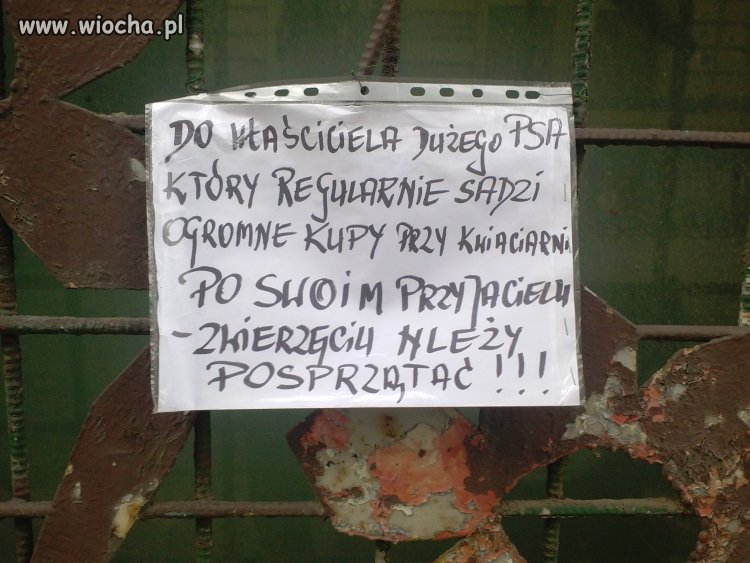 www.wiocha.pl
DO WŁAŚCICIELA DUŻEGO PSA
KTÓRY REGULARNIE SADZI
OGROMNE KUPY PRZY KWIACIARNI
PO SWOIM PRZYJACIELU
-ZWIERZĘCIU NLEŻY
POSPRZĄTAĆ!!!